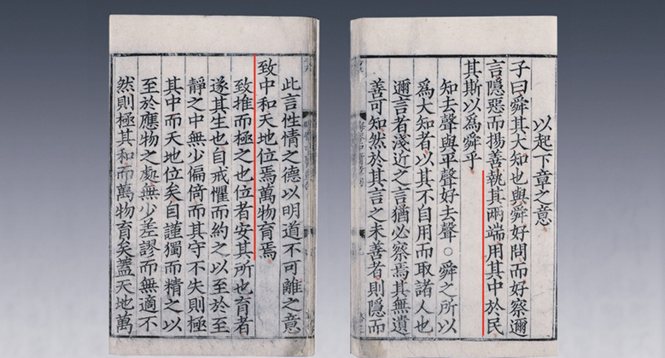 以起下章之意
子曰舜其大知也與舜好問而好察邇
言隱惡而揚善執其兩端用其中於民
其斯以爲舜乎
知去聲與平聲好去聲○舜之所以
爲大知者以其不自用而取諸人也
邇言者淺近之言猶必察焉其無遺
善可知然於其言之未善者則隱而
此言性情之德以明道不可離之意
致中和天地位焉萬物育焉
致推而極之也位者安其所也育者
遂其生也自戒懼而約之以至於至
靜之中無少偏倚而其守不失則極
其中而天地位矣自謹獨而精之以
至於應物之處無少差謬而無適不
然則極其和而萬物育矣蓋天地萬